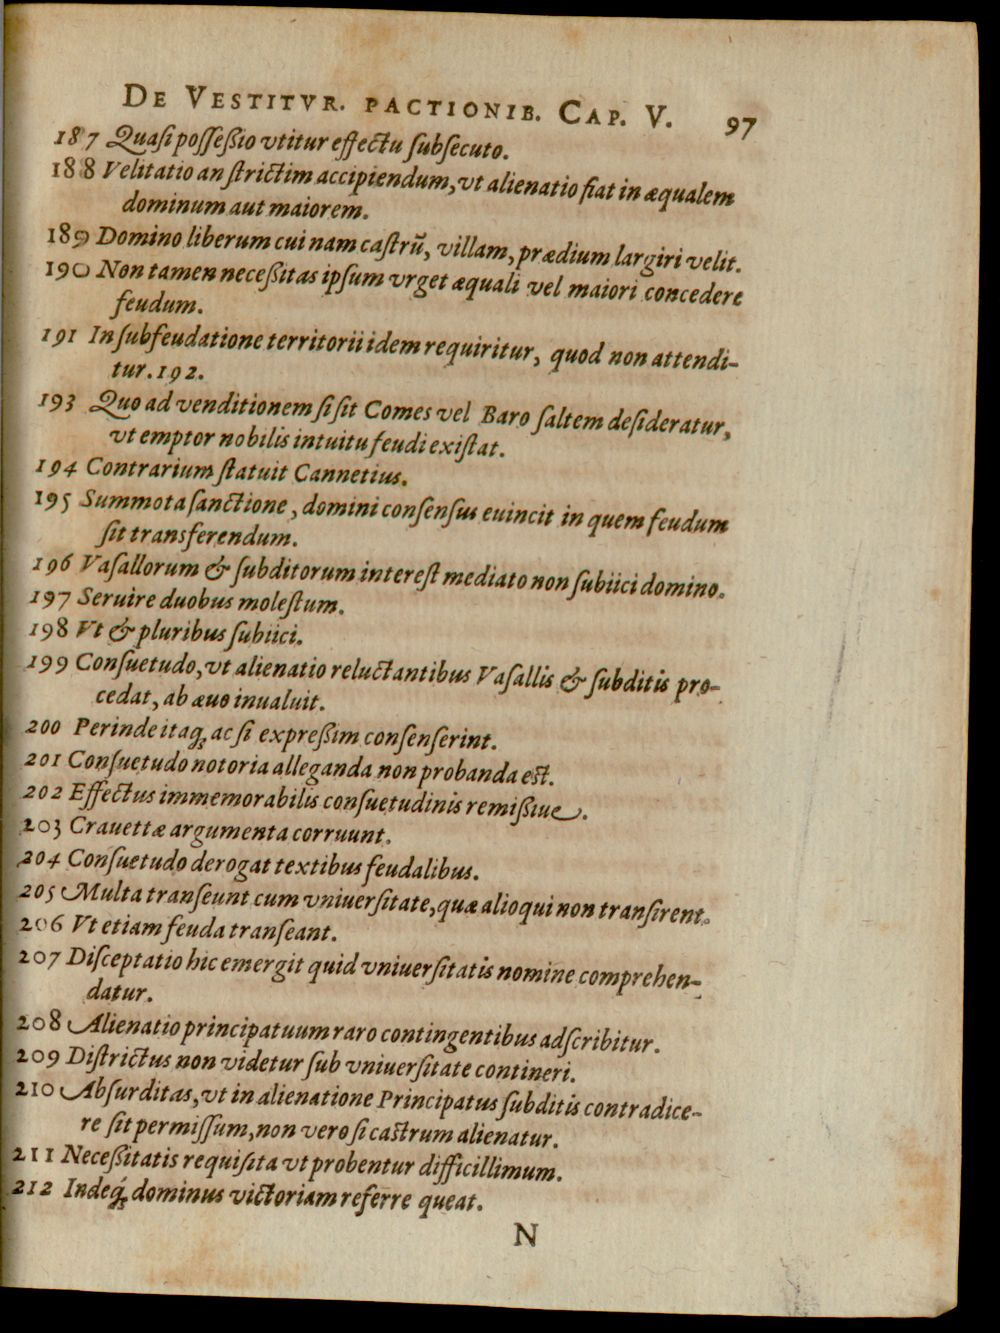 DE VESTITVR. PACTIONIB. CAP. V. 97
187 Quasi posseßio vtitur effectu subsecuto.
188 Velitatio an strictim accipiendum, vt alienatio fiat in æqualem
dominum aut maiorem.
189 Domino liberum cui nam castrũ, villam, prædium largiri velit.
190 Non tamen neceßitas ipsum vrget æquali vel maiori concedere
feudum.
191 In subfeudatione territorii idem requiritur, quod non attendi-
tur. 192.
193 Quo ad venditionem si sit Comes vel Baro saltem desideratur,
vt emptor nobilis intuitu feudi existat.
194 Contrarium statuit Cannetius.
195 Summota sanctione, domini consensus euincit in quem feudum
sit transferendum.
196 Vasallorum & subditorum interest mediato non subiici domino.
197 Seruire duobus molestum.
198 Vt & pluribus subiici.
199 Consuetudo, vt alienatio reluctantibus Vasallis & subditis pro-
cedat, ab æuo inualuit.
200 Perinde itaq; ac si expreßim consenserint.
201 Consuetudo notoria alleganda non probanda est.
202 Effectus immemorabilis consuetudinis remißiue.
203 Crauettæ argumenta corruunt.
204 Consuetudo derogat textibus feudalibus.
205 Multa transeunt cum vniuersitate, quæ alioqui non transirent.
206 Vt etiam feuda transeant.
207 Disceptatio hic emergit quid vniuersitatis nomine comprehen-
datur.
208 Alienatio principatuum raro contingentibus adscribitur.
209 Districtus non videtur sub vniuersitate contineri.
210 Absurditas, vt in alienatione Principatus subditis contradice-
re sit permissum, non vero si castrum alienatur.
211 Neceßitatis requisita vt probentur difficillimum.
212 Indeq́; dominus victoriam referre queat.
N